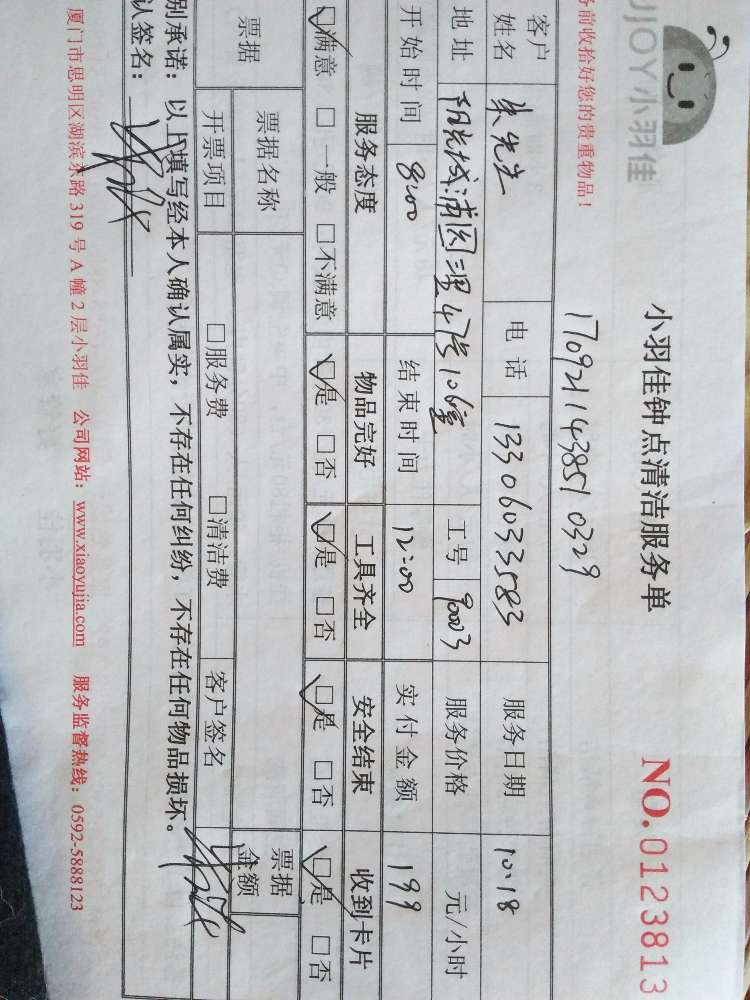 UJOY小羽佳
务前收拾好您的贵重物品！
小羽佳钟点清洁服务单
NO.0123813
170921143851 0329
客户姓名 朱先生 电话 13306033583 服务日期 10.18
地址 阳光城浦园三里47号106室 工号 90003 服务价格 元/小时
开始时间 8:00 结束时间 12:00 实付金额 199
服务态度 物品完好 工具齐全 安全结束 收到卡片
☑满意 □一般 □不满意 ☑是 □否 ☑是 □否 ☑是 □否 ☑是 □否
票据 票据名称 票据金额
开票项目 □服务费 □清洁费 客户签名
别承诺：以上填写经本人确认属实，不存在任何纠纷，不存在任何物品损坏。
认签名：
厦门市思明区湖滨东路319号A幢2层小羽佳 公司网站：www.xiaoyujia.com 服务监督热线：0592-5888123